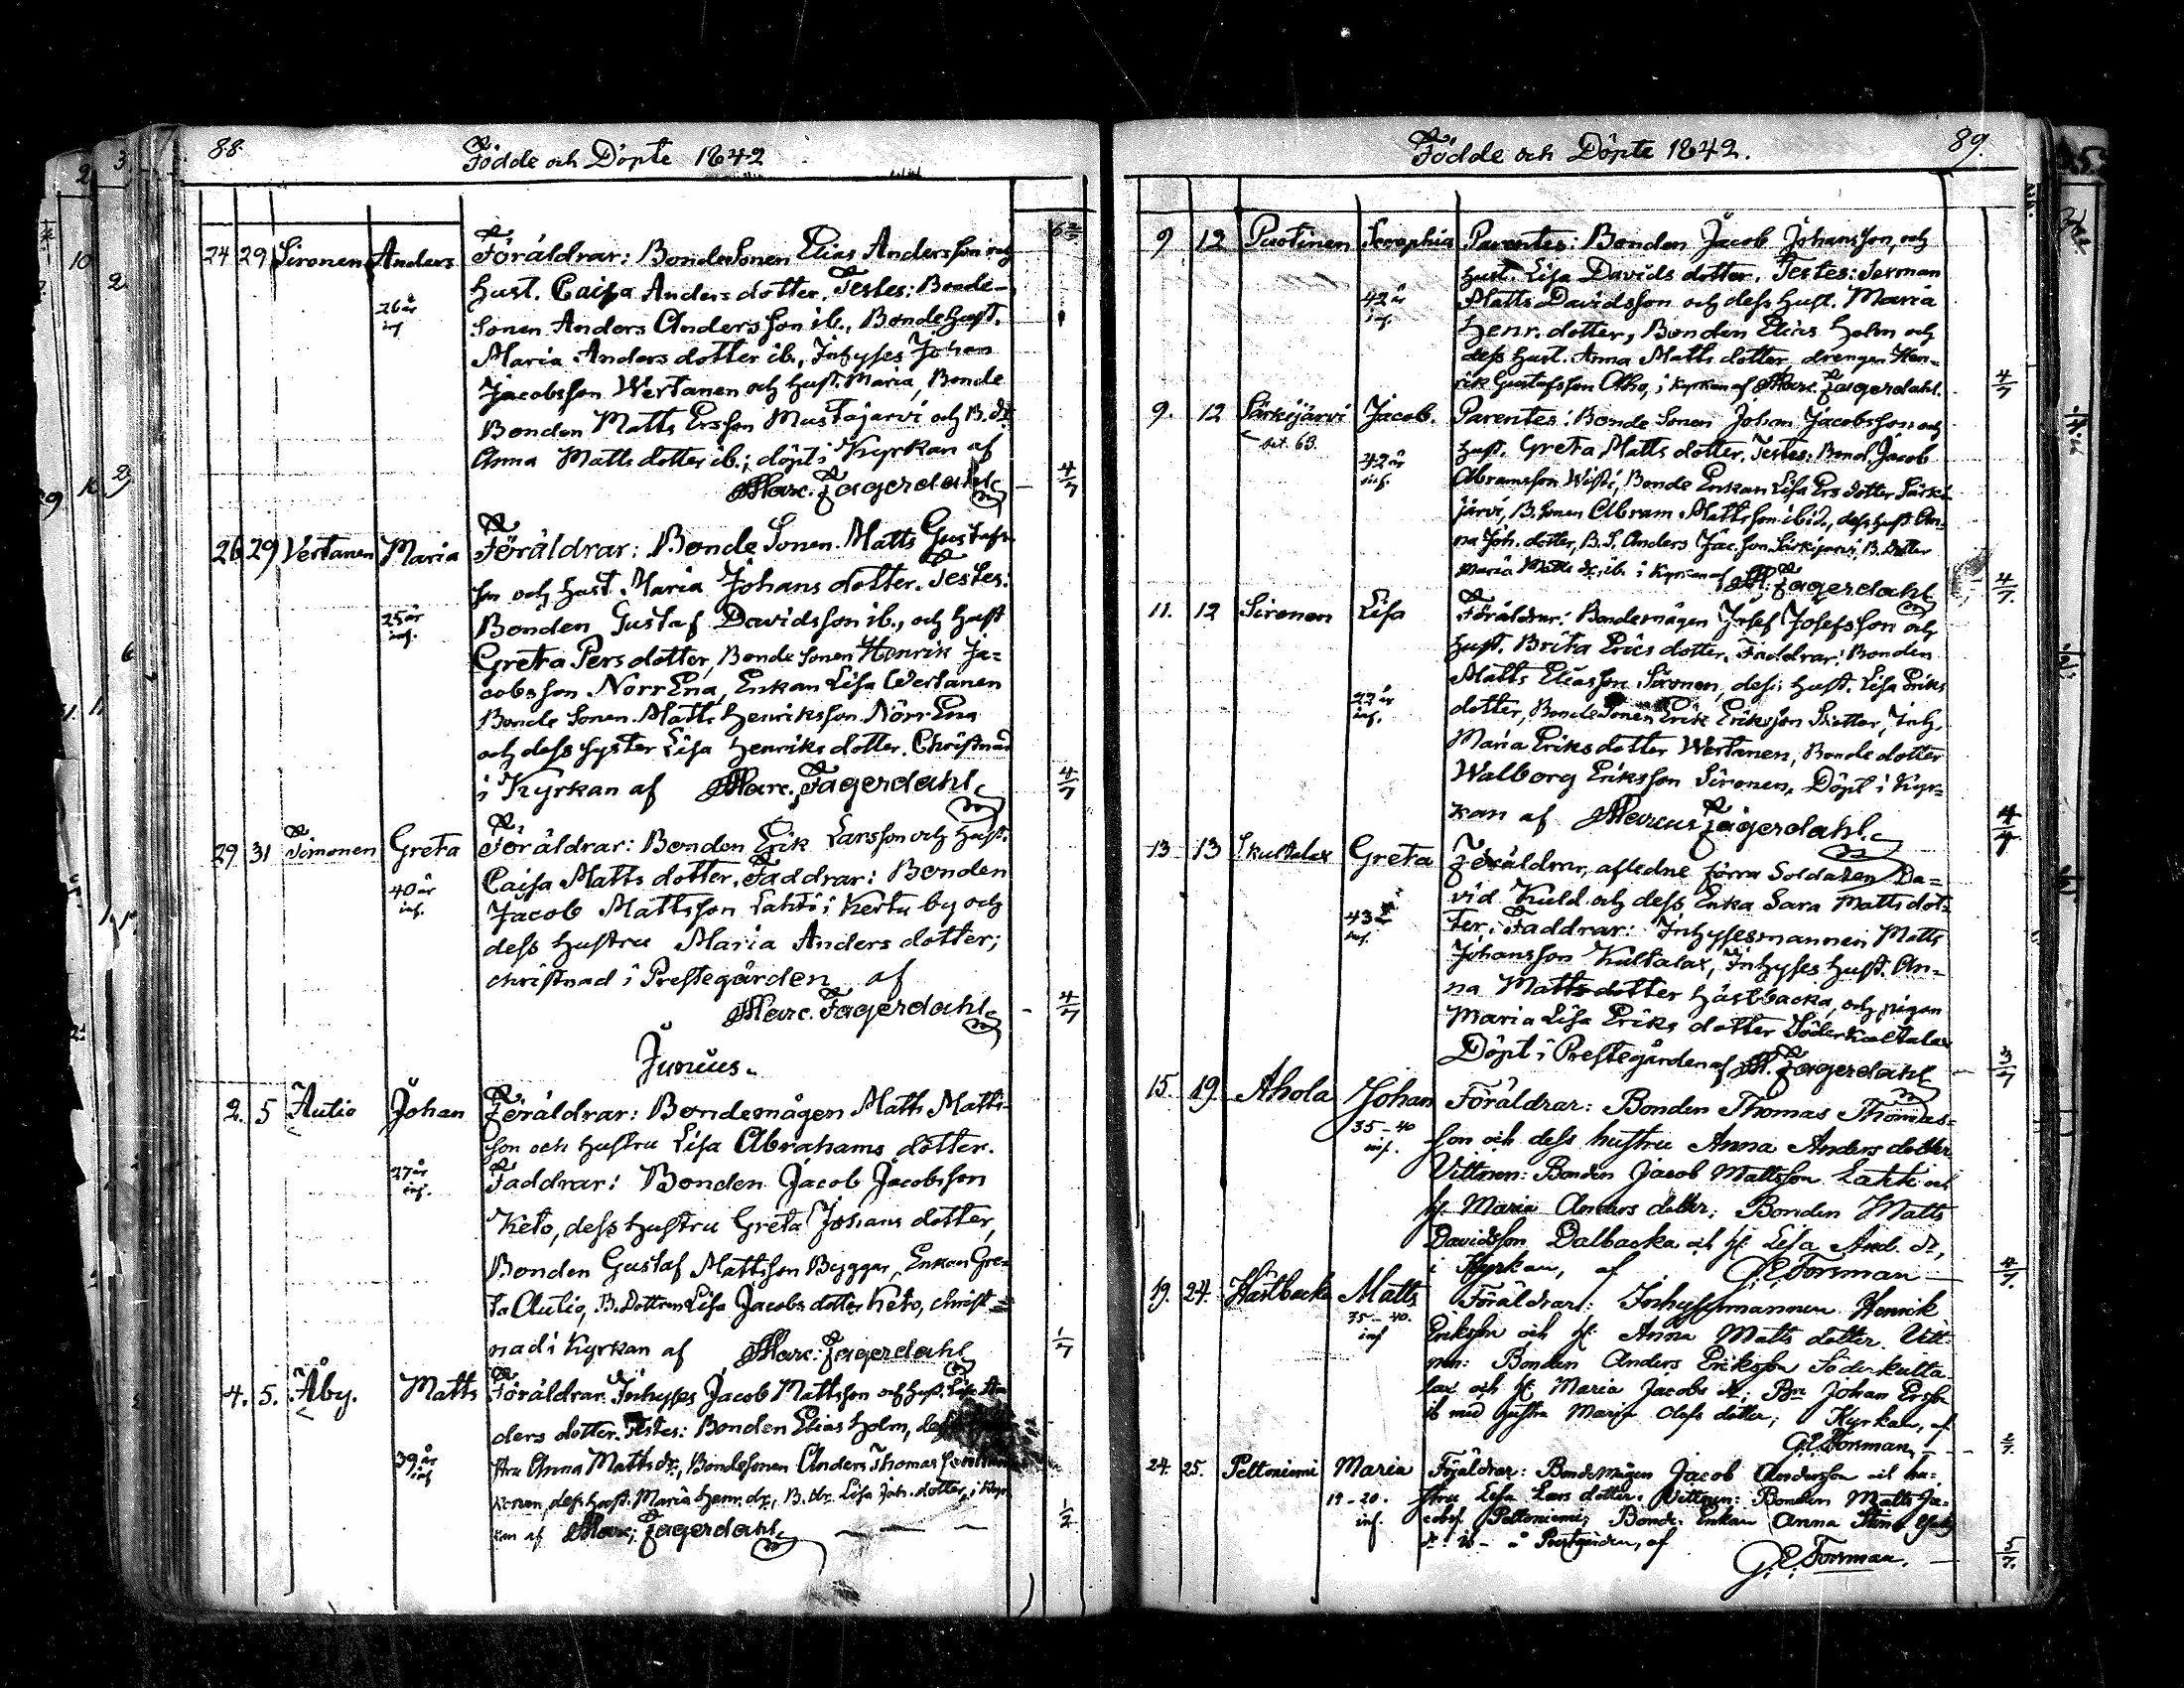 88.
Födde och Döpte 1842
24 29 Sironen Anders Föräldrar: BondeSonen Elias Andersson och
hust. Caisa Anders dotter. Testes: Bonde-
26 år
inf.
Sonen Anders Andersson ib., Bondehust.
Maria Anders dotter ib., Inhyses Johan
Jacobsson Wertanen och hust. Maria, Bonde
Bonden Matts Ersson Mustajarvi och B. dr
Anna Matts dotter ib.; döpt i Kyrkan af
Marc. Fagerdahl 4/7
26 29 Vertanen Maria Föräldrar: Bonde Sonen Matts Gustafs-
son och hust. Maria Johans dotter. Testes:
25 år
inf.
Bonden Gustaf Davidsson ib., och hust
Greta Pers dotter, Bonde Sonen Henrik Ja=
cobsson NorrEna, Enkan Lisa Wertanen
Bonde Sonen Matts Henriksson Norr Ena
och dess syster Lisa Henriks dotter. Christnad
i Kyrkan af Marc. Fagerdahl 4/7
29 31 Timonen Greta Föräldrar: Bonden Erik Larsson och hust.
40 år
inf.
Caisa Matts dotter. Faddrar: Bonden
Jacob Mattsson Lahti i Kertu by och
dess hustru Maria Anders dotter;
christnad i Prestegården af
Marc. Fagerdahl 4/7
Junius.
2. 5 Autio Johan Föräldrar: Bondemågen Matts Matts-
son och hustru Lisa Abrahams dotter.
27 år
inf.
Faddrar: Bonden Jacob Jacobsson
Keto, dess hustru Greta Johans dotter,
Bonden Gustaf Mattsson Byggar, Enkan Gre-
ta Autio, B. Dottren Lisa Jacobs dotter Keto, christ=
nad i Kyrkan af Marc. Fagerdahl 1/7
4. 5. Åby. Matts Föräldrar: Inhyses Jacob Mattsson och hust. Lisa An
ders dotter. Testes: Bonden Elias Holm,
39 år
inf
stru Anna Matts dr., Bondesonen Anders Thomasson
dess hust. Maria Henr. dr., B. dr. Lisa Joh. dotter, i Kyr
kan af Marc. Fagerdahl 1/2
Födde och Döpte 1842.
89.
9 12 Puotinen Seraphia Parentes: Bonden Jacob Johansson, och
hust. Lisa Davids dotter. Testes:
42 år
inf.
Matts Davidsson och dess hust. Maria
Henr. dotter, Bonden Elias Holm och
dess hust. Anna Matts dotter drengen Hen=
rik Gustafsson Aho, i Kyrkan af Marc. Fagerdahl. 4/7
9. 12 Särkijärvi Jacob. Parentes: Bonde Sonen Johan Jacobsson och
hust. Greta Matts dotter. Testes: Bond. Jacob
42 år
inf.
Abramsson Wisti, Bonde Enkan Lisa Ers dotter Särki
järvi, B. Sonen Abram Mattsson ibid., dess hust. An-
na Joh. dotter, B. S. Anders Jac. son Särkijärvi, B. Dotter
Maria Matts dr. ib. i Kyrkan af M. Fagerdahl 4/7.
11. 12 Sironen Lisa Föräldrar: Bondemågen Josef Josefsson och
hust. Brita Erics dotter. Faddrar: Bonden
Matts Eliasson Sironen, dess hust. Lisa Eriks
22 år
inf.
dotter, BondeSonen Erik Eriksson Inh.
Maria Eriks dotter Wertanen, Bonde dotter
Walborg Eriksson Sironen. Döpt i Kyr=
kan af Marcus Fagerdahl. 4/7
13 13 Greta Föräldrar, afledne förra Soldaten Da=
vid Kuld och dess Enka Sara Matts dot=
43
inf.
ter. Faddrar: Inhysesmannen Matts
Johansson Kultalax, Inhyses hust. An=
na Matts dotter Hästbacka, och pigan
Maria Lisa Eriks dotter Söderkultalax
Döpt i Prestegården af M. Fagerdahl 3/7
15. 19. Ahola Johan Föräldrar: Bonden Thomas Thomas=
35-40
inf.
son och dess hustru Anna Anders dotter
Vittnen: Bonden Jacob Mattsson Lahti och
h. Maria Anders dotter; Bonden Matts
Davidsson Dalbacka och h. Lisa And. dr,
i Kyrkan, af G. E. Forsman 4/7.
19. 24. Hästbacka Matts Föräldrar: Inhysesmannen Henrik
35-40.
inf
Eriksson och h. Anna Matts dotter. Vitt-
nen: Bonden Anders Eriksson Söderkulta
lax och h. Maria Jacobs dr; Bn Johan Ersson
ib med hustru Maria Olofs dotter; Kyrkan, af
G. E. Forsman
24. 25. Peltoniemi Maria Föräldrar: Bondemågen Jacob Andersson och hu-
19-20.
inf.
stru Lisa Lars dotter. Vittnen: Bonden Matts Ja-
cobss. Peltoniemi, Bonde Enkan Anna Stina
dr ib - i Prestgården, af
G. E. Forsman. 5/7.